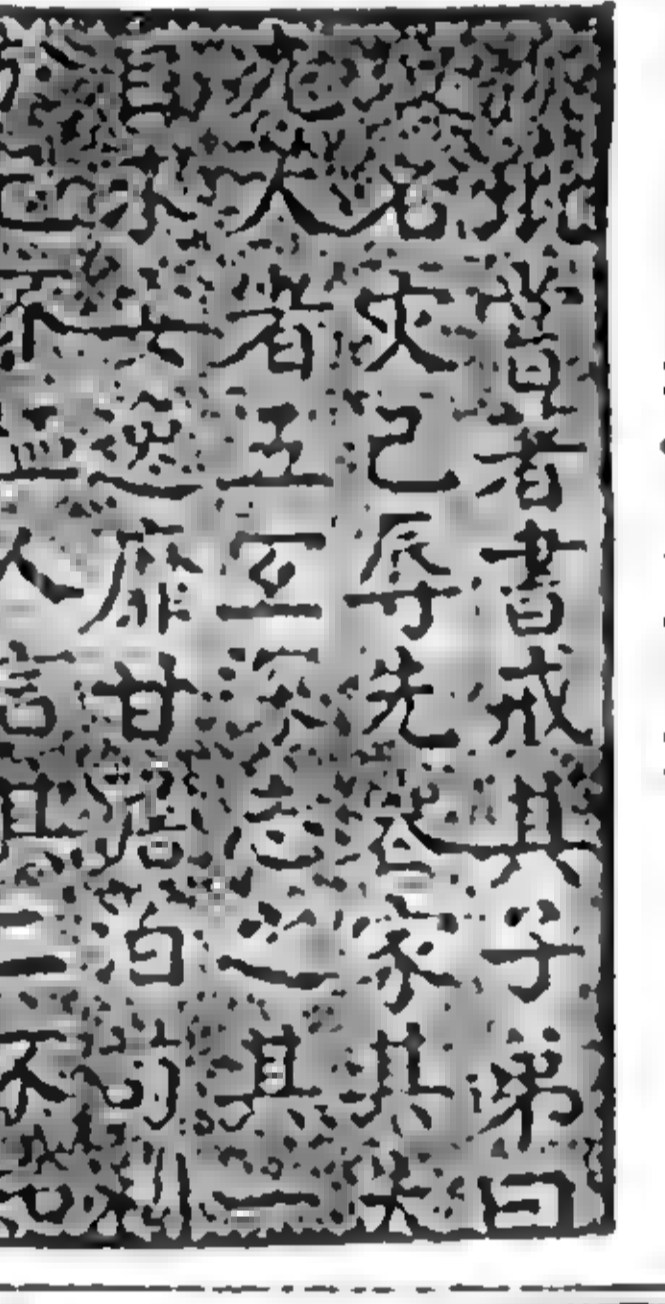 柳玭嘗著書戒其子弟曰
壞名災己辱先喪家其失
尤大者五宜深志之其一
自求安逸靡甘澹泊苟利
於己不恤人言其二不知